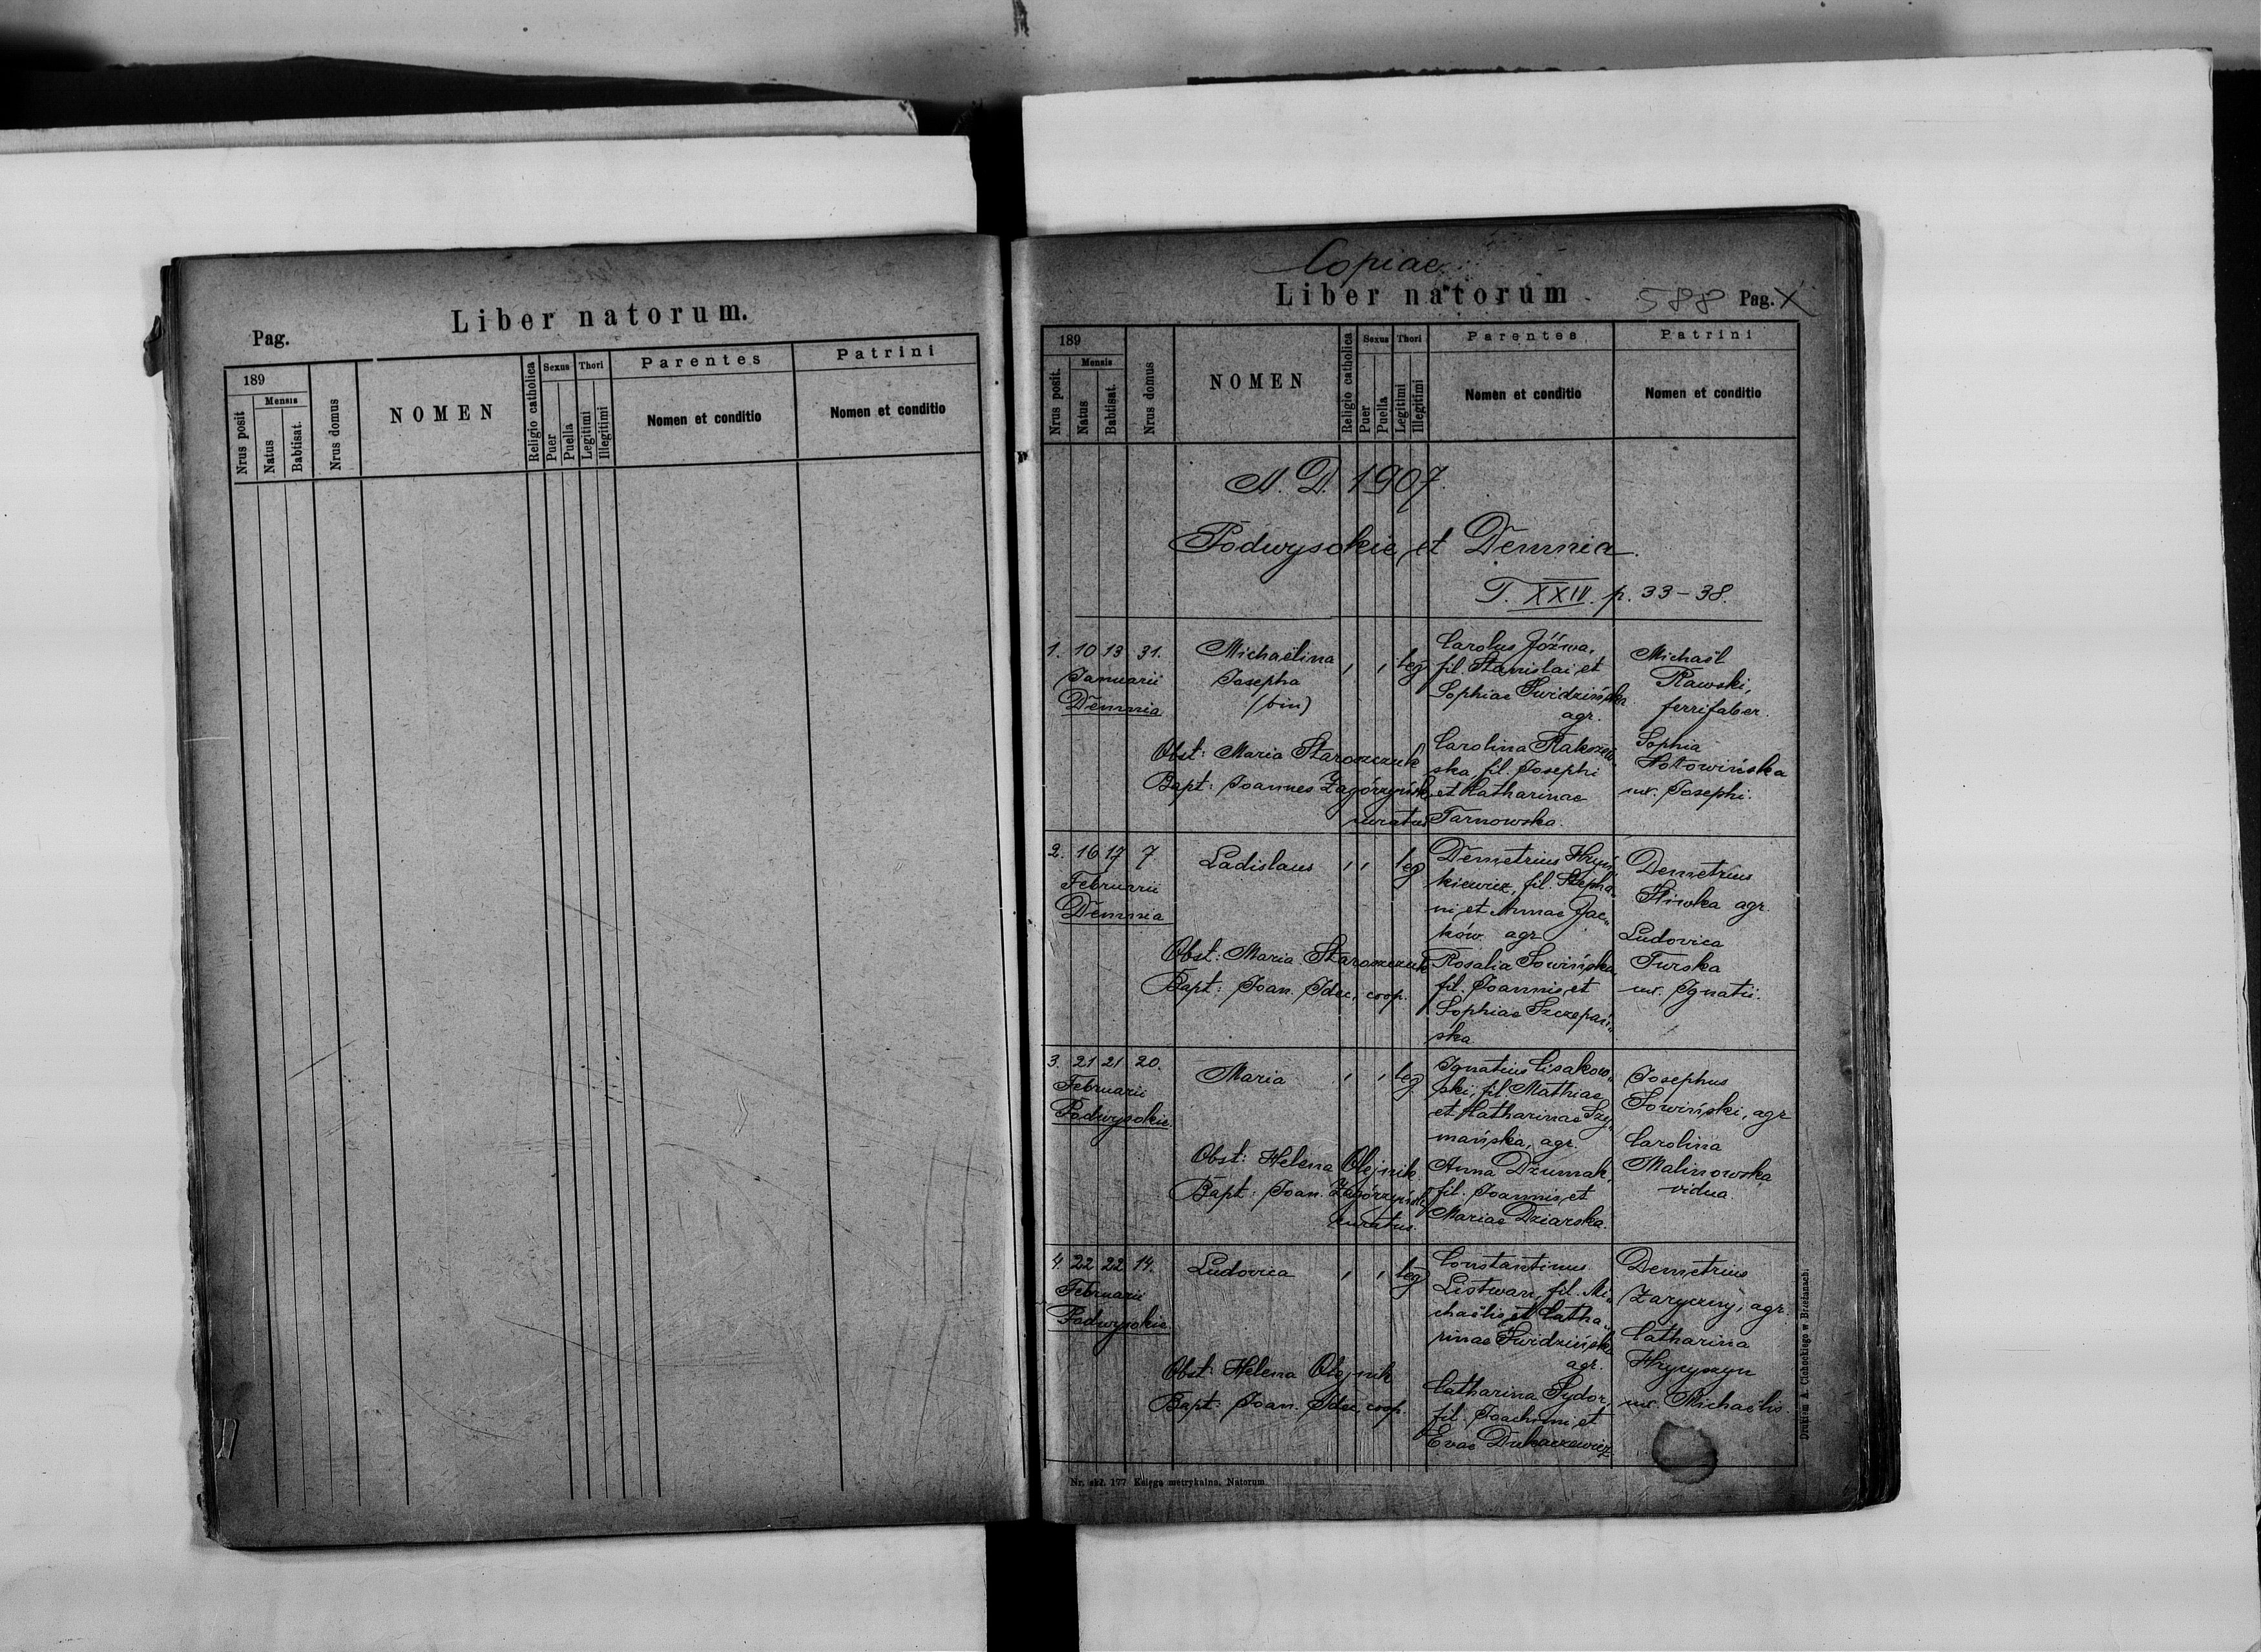 Liber natorum.
Pag.
189
Nrus posit
Mensis
Natus
Babtisat.
Nrus domus
NOMEN
Religio catholica
Sexus
Puer
Puella
Thori
Legitimi
Illegitimi
Parentes
Nomen et conditio
Patrini
Nomen et conditio
Copiae
Liber natorum
588 Pag. X
189
Nrus posit.
Mensis
Natus
Babtisat.
Nrus domus
NOMEN
Religio catholica
Sexus
Puer
Puella
Thori
Legitimi
Illegitimi
Parentes
Nomen et conditio
Patrini
Nomen et conditio
A. D. 1907.
Podwysokie et Demnia.
T. XXIV. p. 33-38.
1. 10 13 31.
Januarii
Demnia
Michaëlina
Josepha
(bin)
, , leg
Obst: Maria Staroszczuk
Bapt: Joannes Zagórzyński
curatus
Carolus Jóźwa,
fil. Stanislai et
Sophiae Świdzińska
agr.
Carolina Rakszew-
ska fil. Josephi
et Katharinae
Tarnowska.
Michaël
Rawski,
ferrifaber.
Sophia
Hołowińska
ux. Josephi.
2. 16 17 7
Februarii
Demnia
Ladislaus
, , leg
Obst: Maria Staroszczuk
Bapt: Joan. Idec, coop.
Demetrius Hryń-
kiewicz, fil. Stepha-
ni et Annae Jac-
ków agr
Rosalia Sowińska
fil. Joannis et
Sophiae Szczepań-
ska
Demetrius
Śliwka agr.
Ludovica
Turska
ux. Ignatii.
3. 21 21 20.
Februarii
Podwysokie.
Maria
, , leg
Obst: Helena Olejnik
Bapt: Joan. Zagórzyński
curatus.
Ignatius Lisakow-
ski, fil. Mathiae
et Katharinae Szy-
mańska, agr.
Anna Dżumak,
fil. Joannis et
Mariae Dziarska.
Josephus
Sowiński, agr
Carolina
Malinowska
vidua
4. 22 22 14.
Februarii
Podwysokie
Ludovica
, , leg
Obst: Helena Olejnik
Bapt: Joan. Idec, coop.
Constantinus
Listwan, fil. Mi-
chaëlis et Catha-
rinae Świdzińska
agr.
Catharina Sydor,
fil. Joachimi et
Evae Dukaczewicz
Demetrius
Zaryczny, agr.
Catharina
Hrycyszyn
ux. Michaëlis.
Nr. skł. 177 Księga metrykalna. Natorum
Drukiem A. Cichockiego w Brzeżanach.